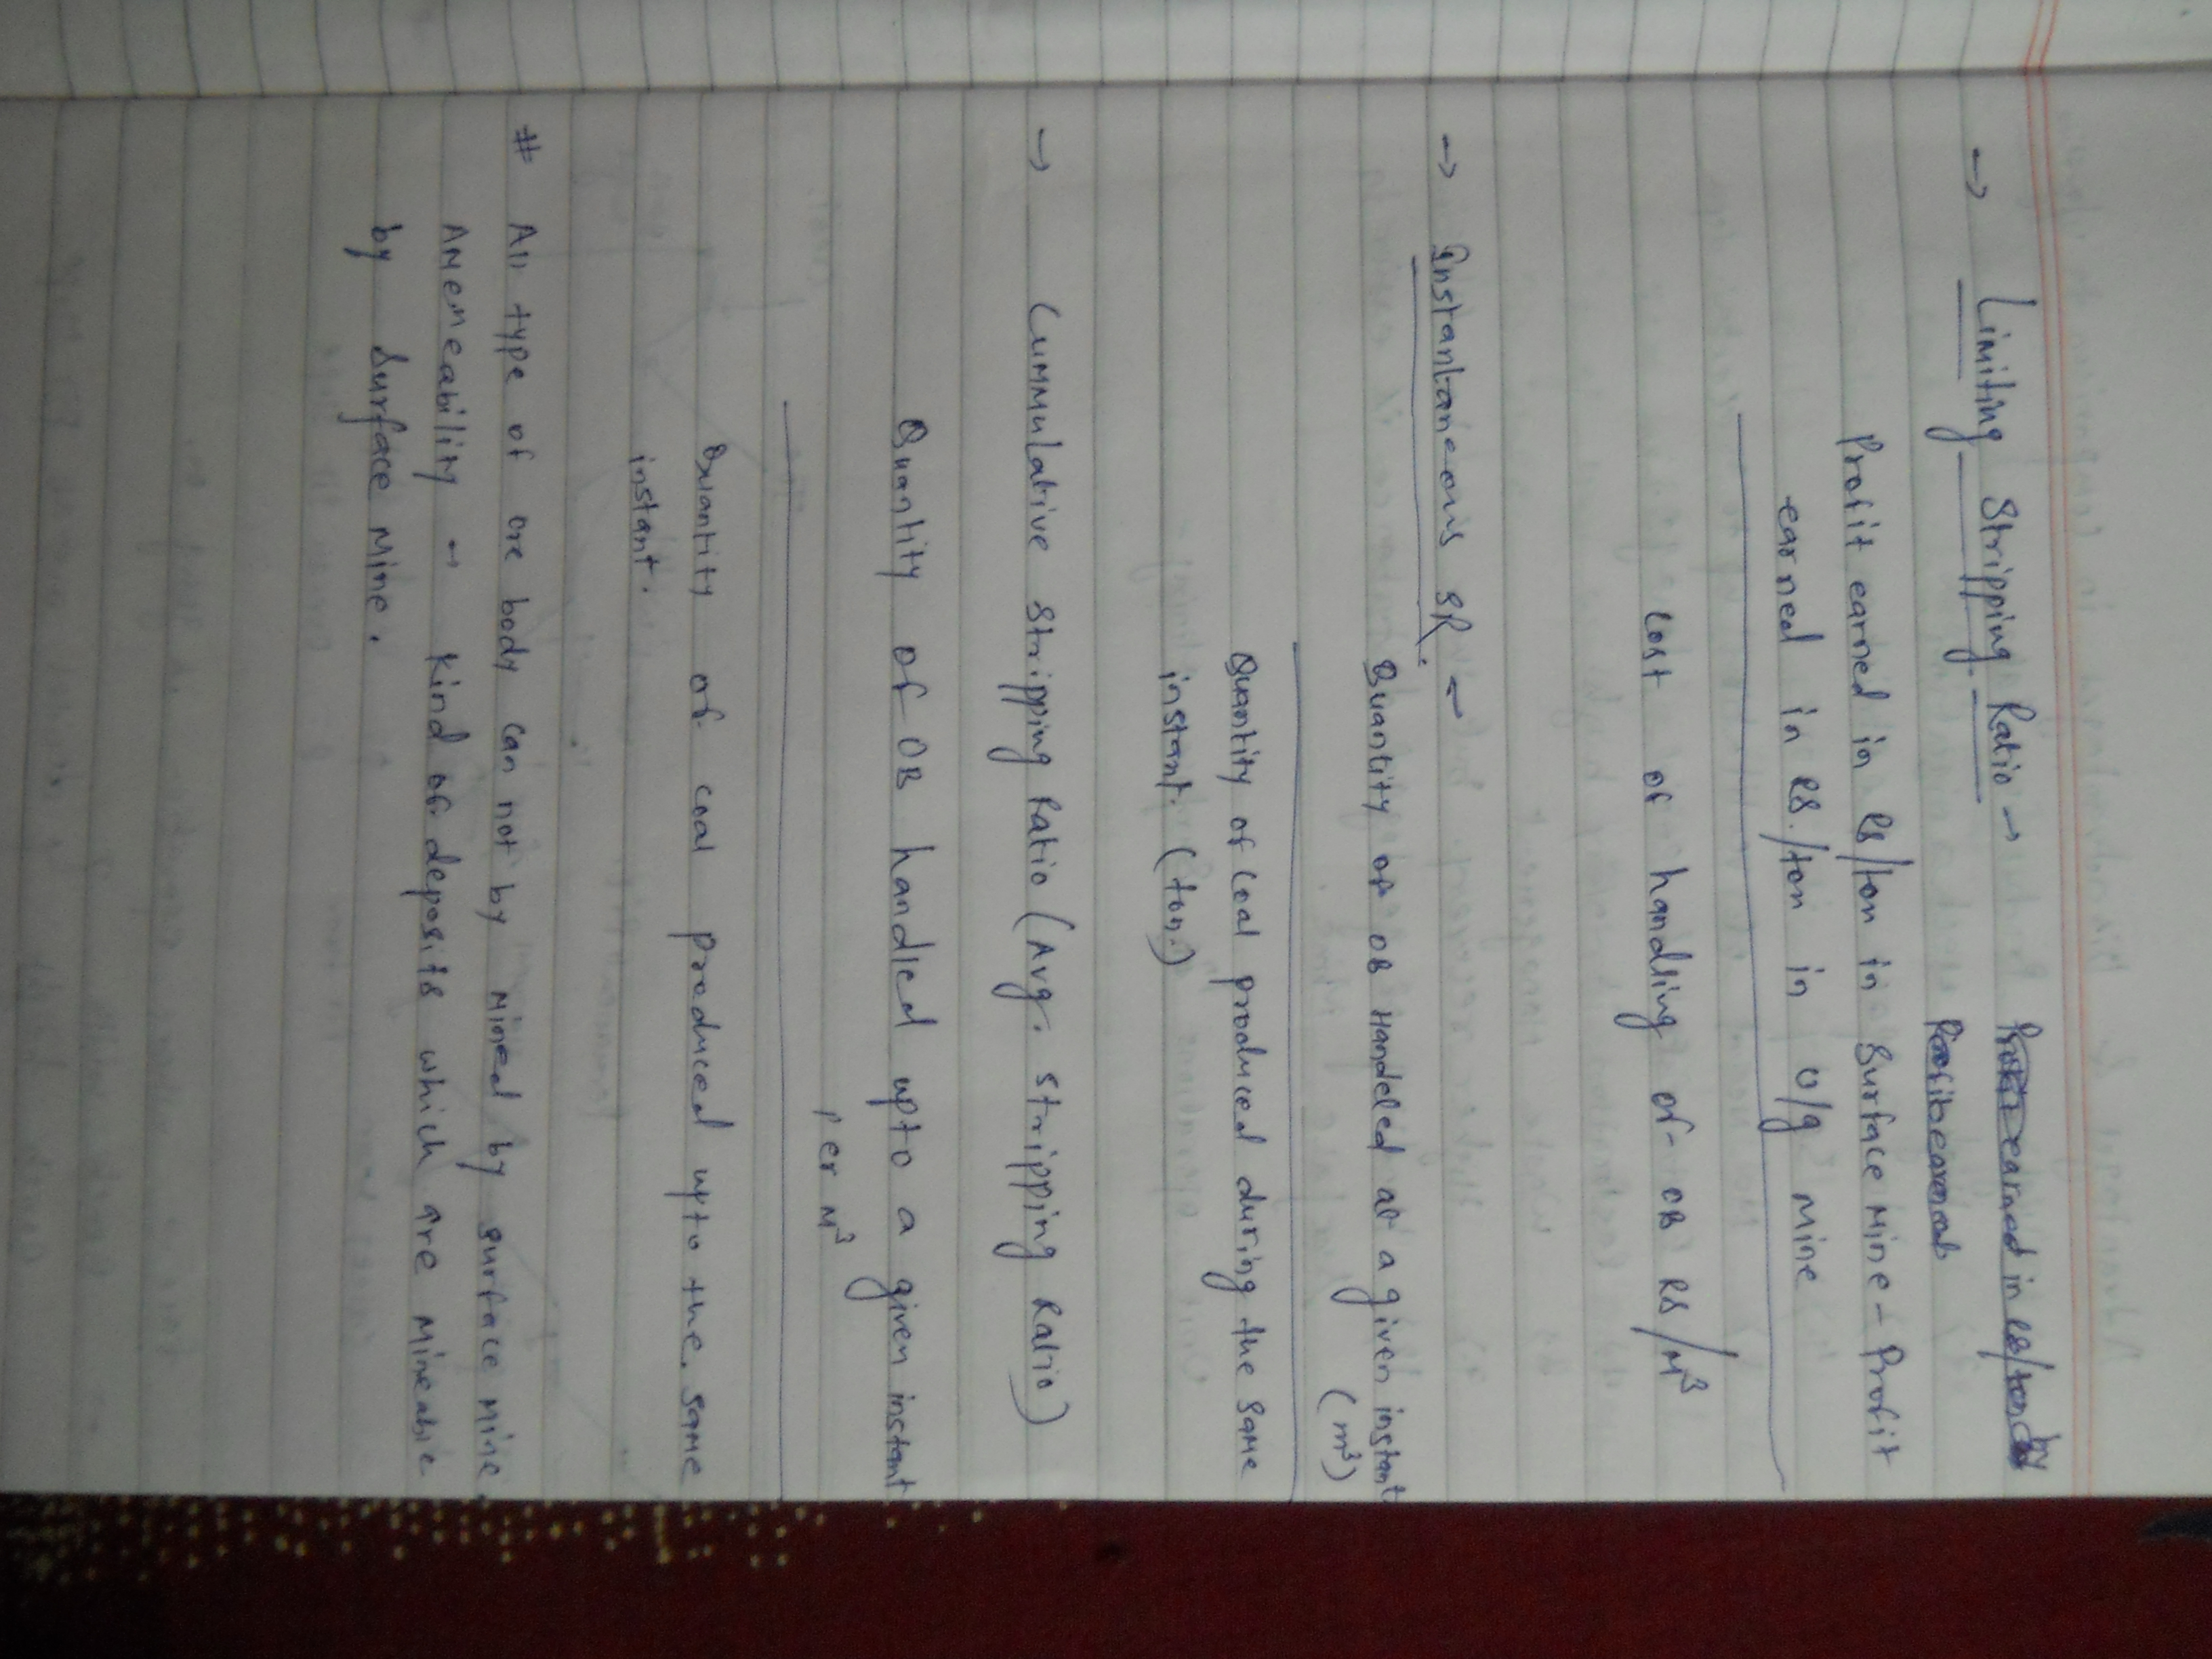 → Limiting Stripping Ratio →
Profit earned in Rs/ton in Surface Mine - Profit
earned in Rs./ton in U/g Mine
Cost of handling of OB Rs/M³
→ Instantaneous SR. →
Quantity of OB Handeled at a given instant
(m³)
Quantity of Coal produced during the same
instant. (ton.)
→ Cummulative Stripping Ratio (Avg. Stripping Ratio)
Quantity of OB handled upto a given instant
per M³
Quantity of coal produced upto the same
instant.
# All type of ore body can not by Mined by surface Mine
Ameneability → Kind of deposits which are Mineable
by Surface Mine.